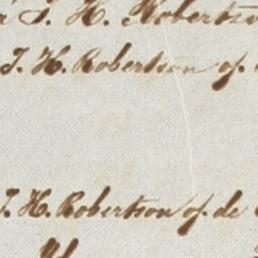 J. H. Robertson
J. H. Robertson op
J. H. Robertson op de